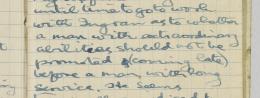 until time to go to work
with Ingram as to whether
a man with extraordinary
abilities should not be
promoted (coming late)
before a man with long
service. He seems